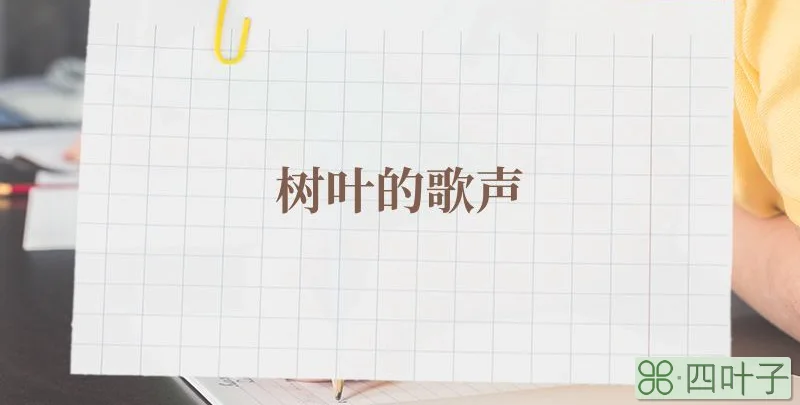 树叶的歌声
⌘·四叶子